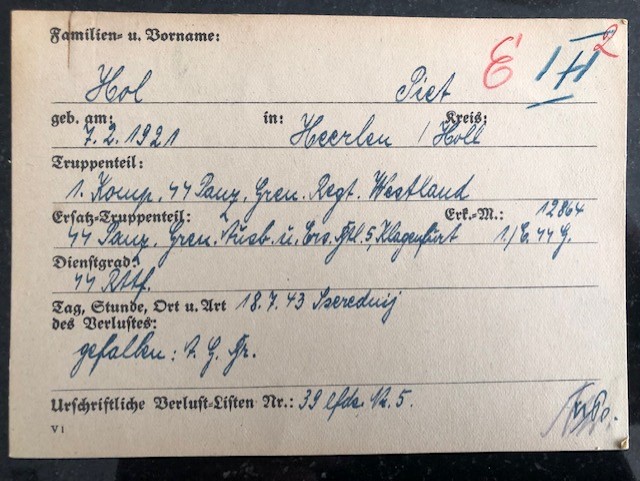 Familien- u. Vorname:
E
2
Hol Piet
geb. am: in: Kreis:
7.2.1921 Heerlen / Holl
Truppenteil:
1. Komp. 44 Panz. Gren. Regt. Westland
Ersatz-Truppenteil: Erk.-M.: 12864
44 Panz. Gren. Ausb. u. Ers. Btl. 5, Klagenfurt 1./E. 44 G.
Dienstgrad:
44 Rttf.
Tag, Stunde, Ort u. Art 18.7.43 Sserednij
des Verlustes:
gefallen: A. G. Gr.
Urschriftliche Verlust-Listen Nr.: 39 lfde. Nr. 5.
V I